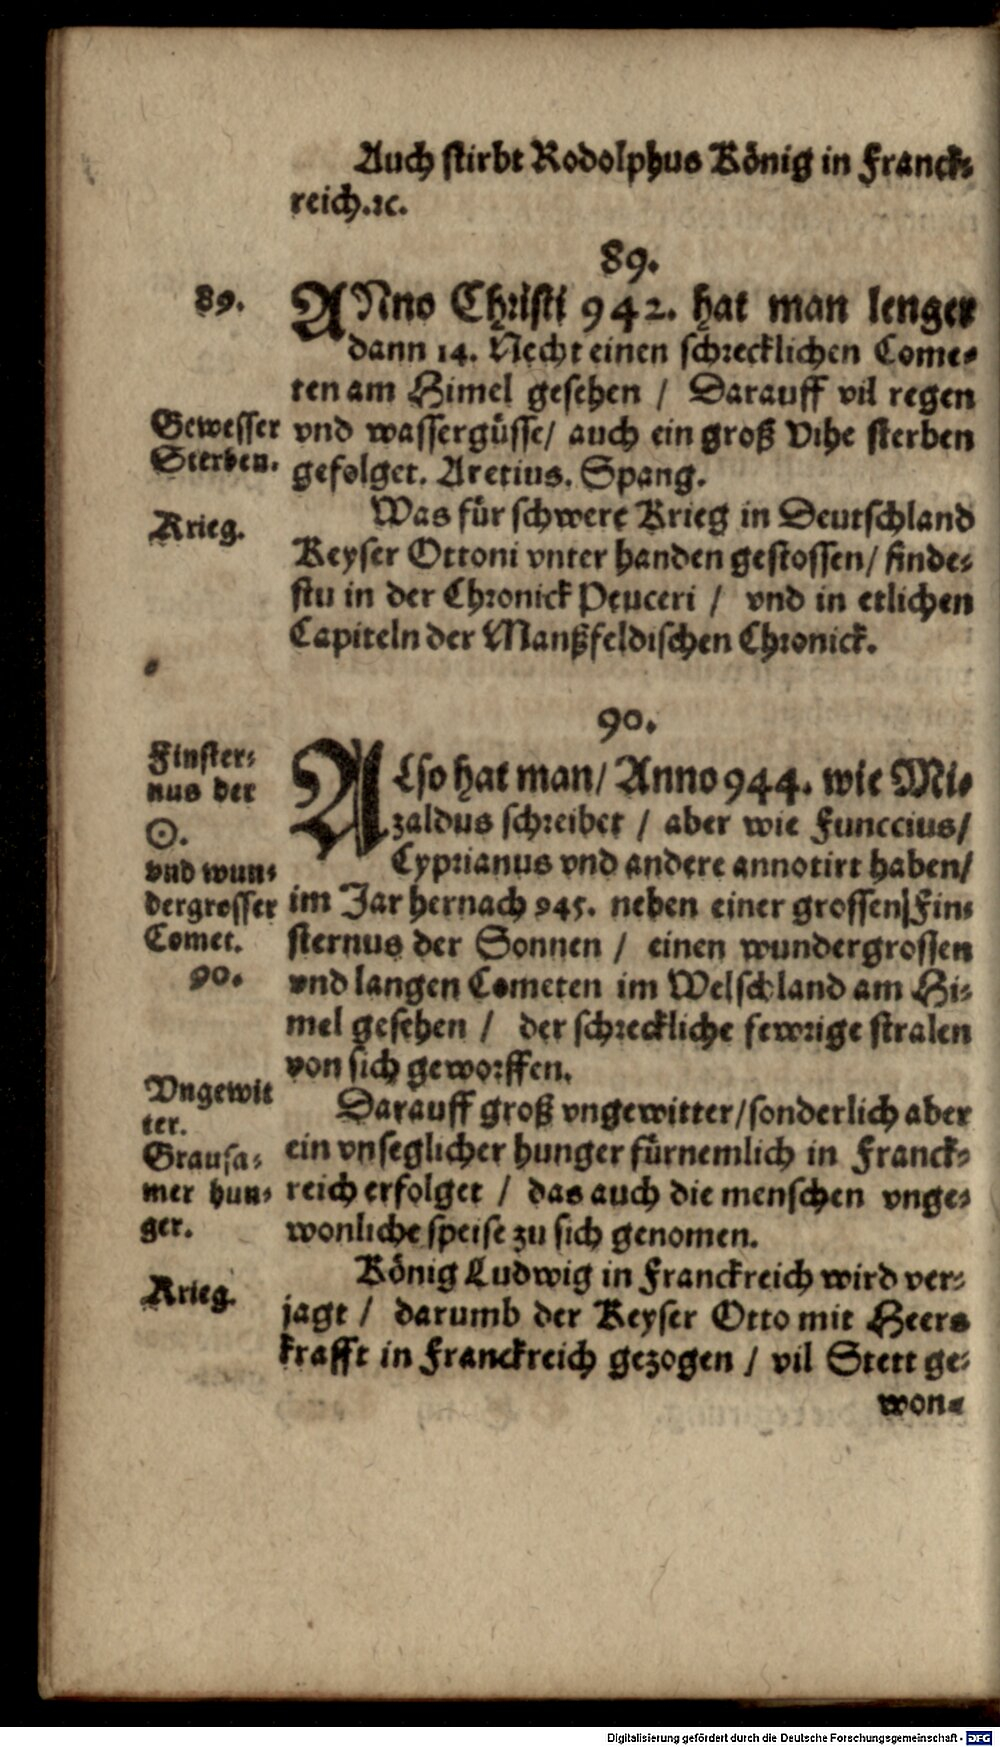 Auch stirbt Rodolphus König in Franck⸗
reich.ꝛc.
89.
89.
ANno Christi 942. hat man lenger
dann 14. Necht einen schrecklichen Come⸗
ten am Himel gesehen / Darauff vil regen
Gewesser
Sterben.
vnd wassergüsse/ auch ein groß Vihe sterben
gefolget. Aretius. Spang.
Krieg.
Was für schwere Krieg in Deutschland
Keyser Ottoni vnter handen gestossen/ finde⸗
stu in der Chronick Peuceri / vnd in etlichen
Capiteln der Manßfeldischen Chronick.
90.
Finster⸗
nus der
☉.
vnd wun⸗
dergrosser
Comet.
90.
ALso hat man/ Anno 944. wie Mi⸗
zaldus schreibet / aber wie Funccius/
Cyprianus vnd andere annotirt haben/
im Jar hernach 945. neben einer grossen Fin⸗
sternus der Sonnen / einen wundergrossen
vnd langen Cometen im Welschland am Hi⸗
mel gesehen / der schreckliche fewrige stralen
von sich geworffen.
Vngewit
ter.
Grausa⸗
mer hun⸗
ger.
Darauff groß vngewitter/sonderlich aber
ein vnseglicher hunger fürnemlich in Franck⸗
reich erfolget / das auch die menschen vnge⸗
wonliche speise zu sich genomen.
Krieg.
König Ludwig in Franckreich wird ver⸗
jagt / darumb der Keyser Otto mit Heers
krafft in Franckreich gezogen / vil Stett ge⸗
won⸗
Digitalisierung gefördert durch die Deutsche Forschungsgemeinschaft - DFG